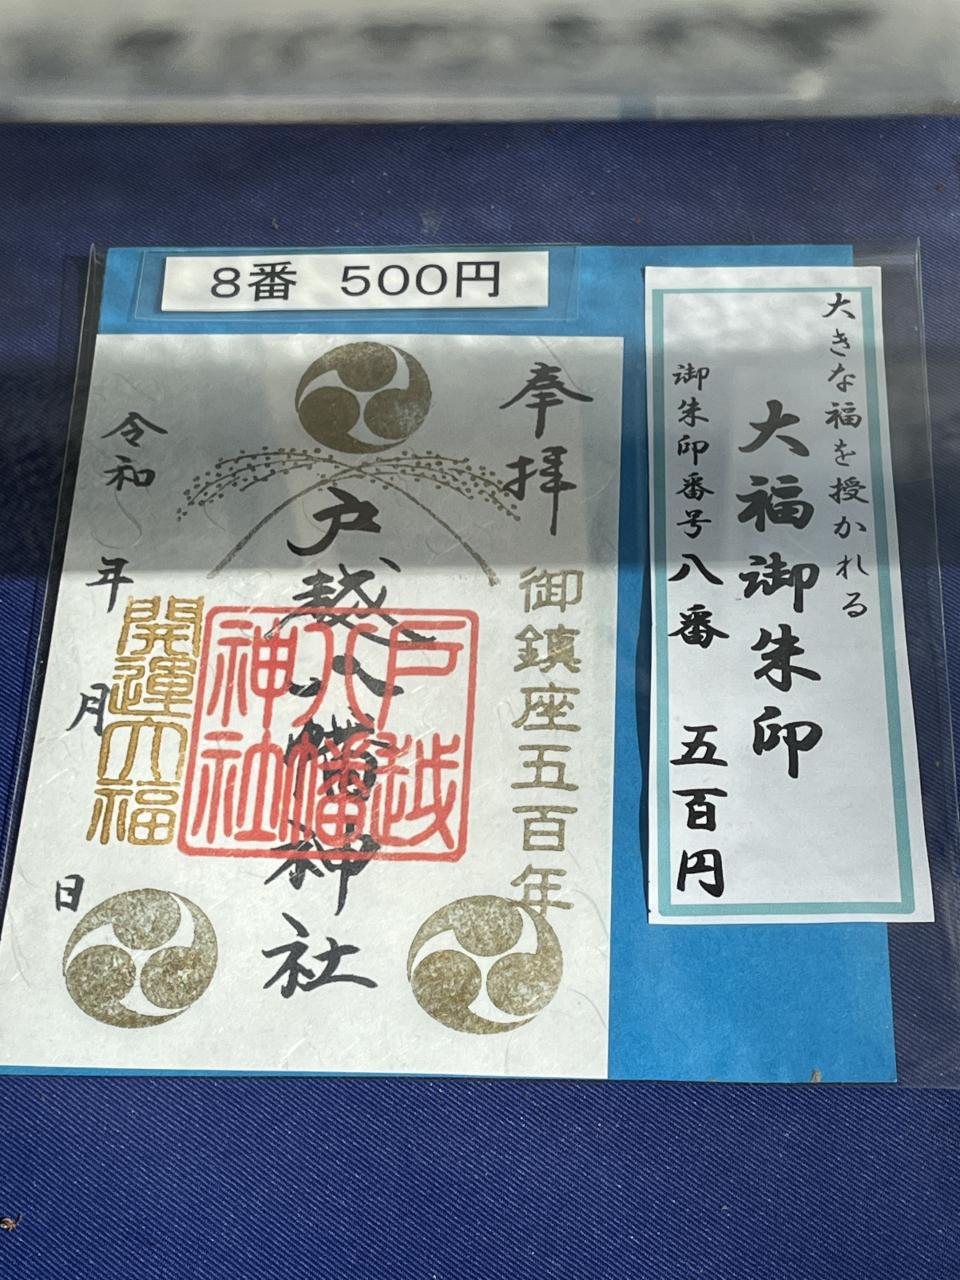 8番 500円
大きな福を授かれる
大福御朱印
御朱印番号八番 五百円
奉拝
御鎮座五百年
戸越八幡神社
戸越
八幡
神社
令和 年 月 日
開運大福